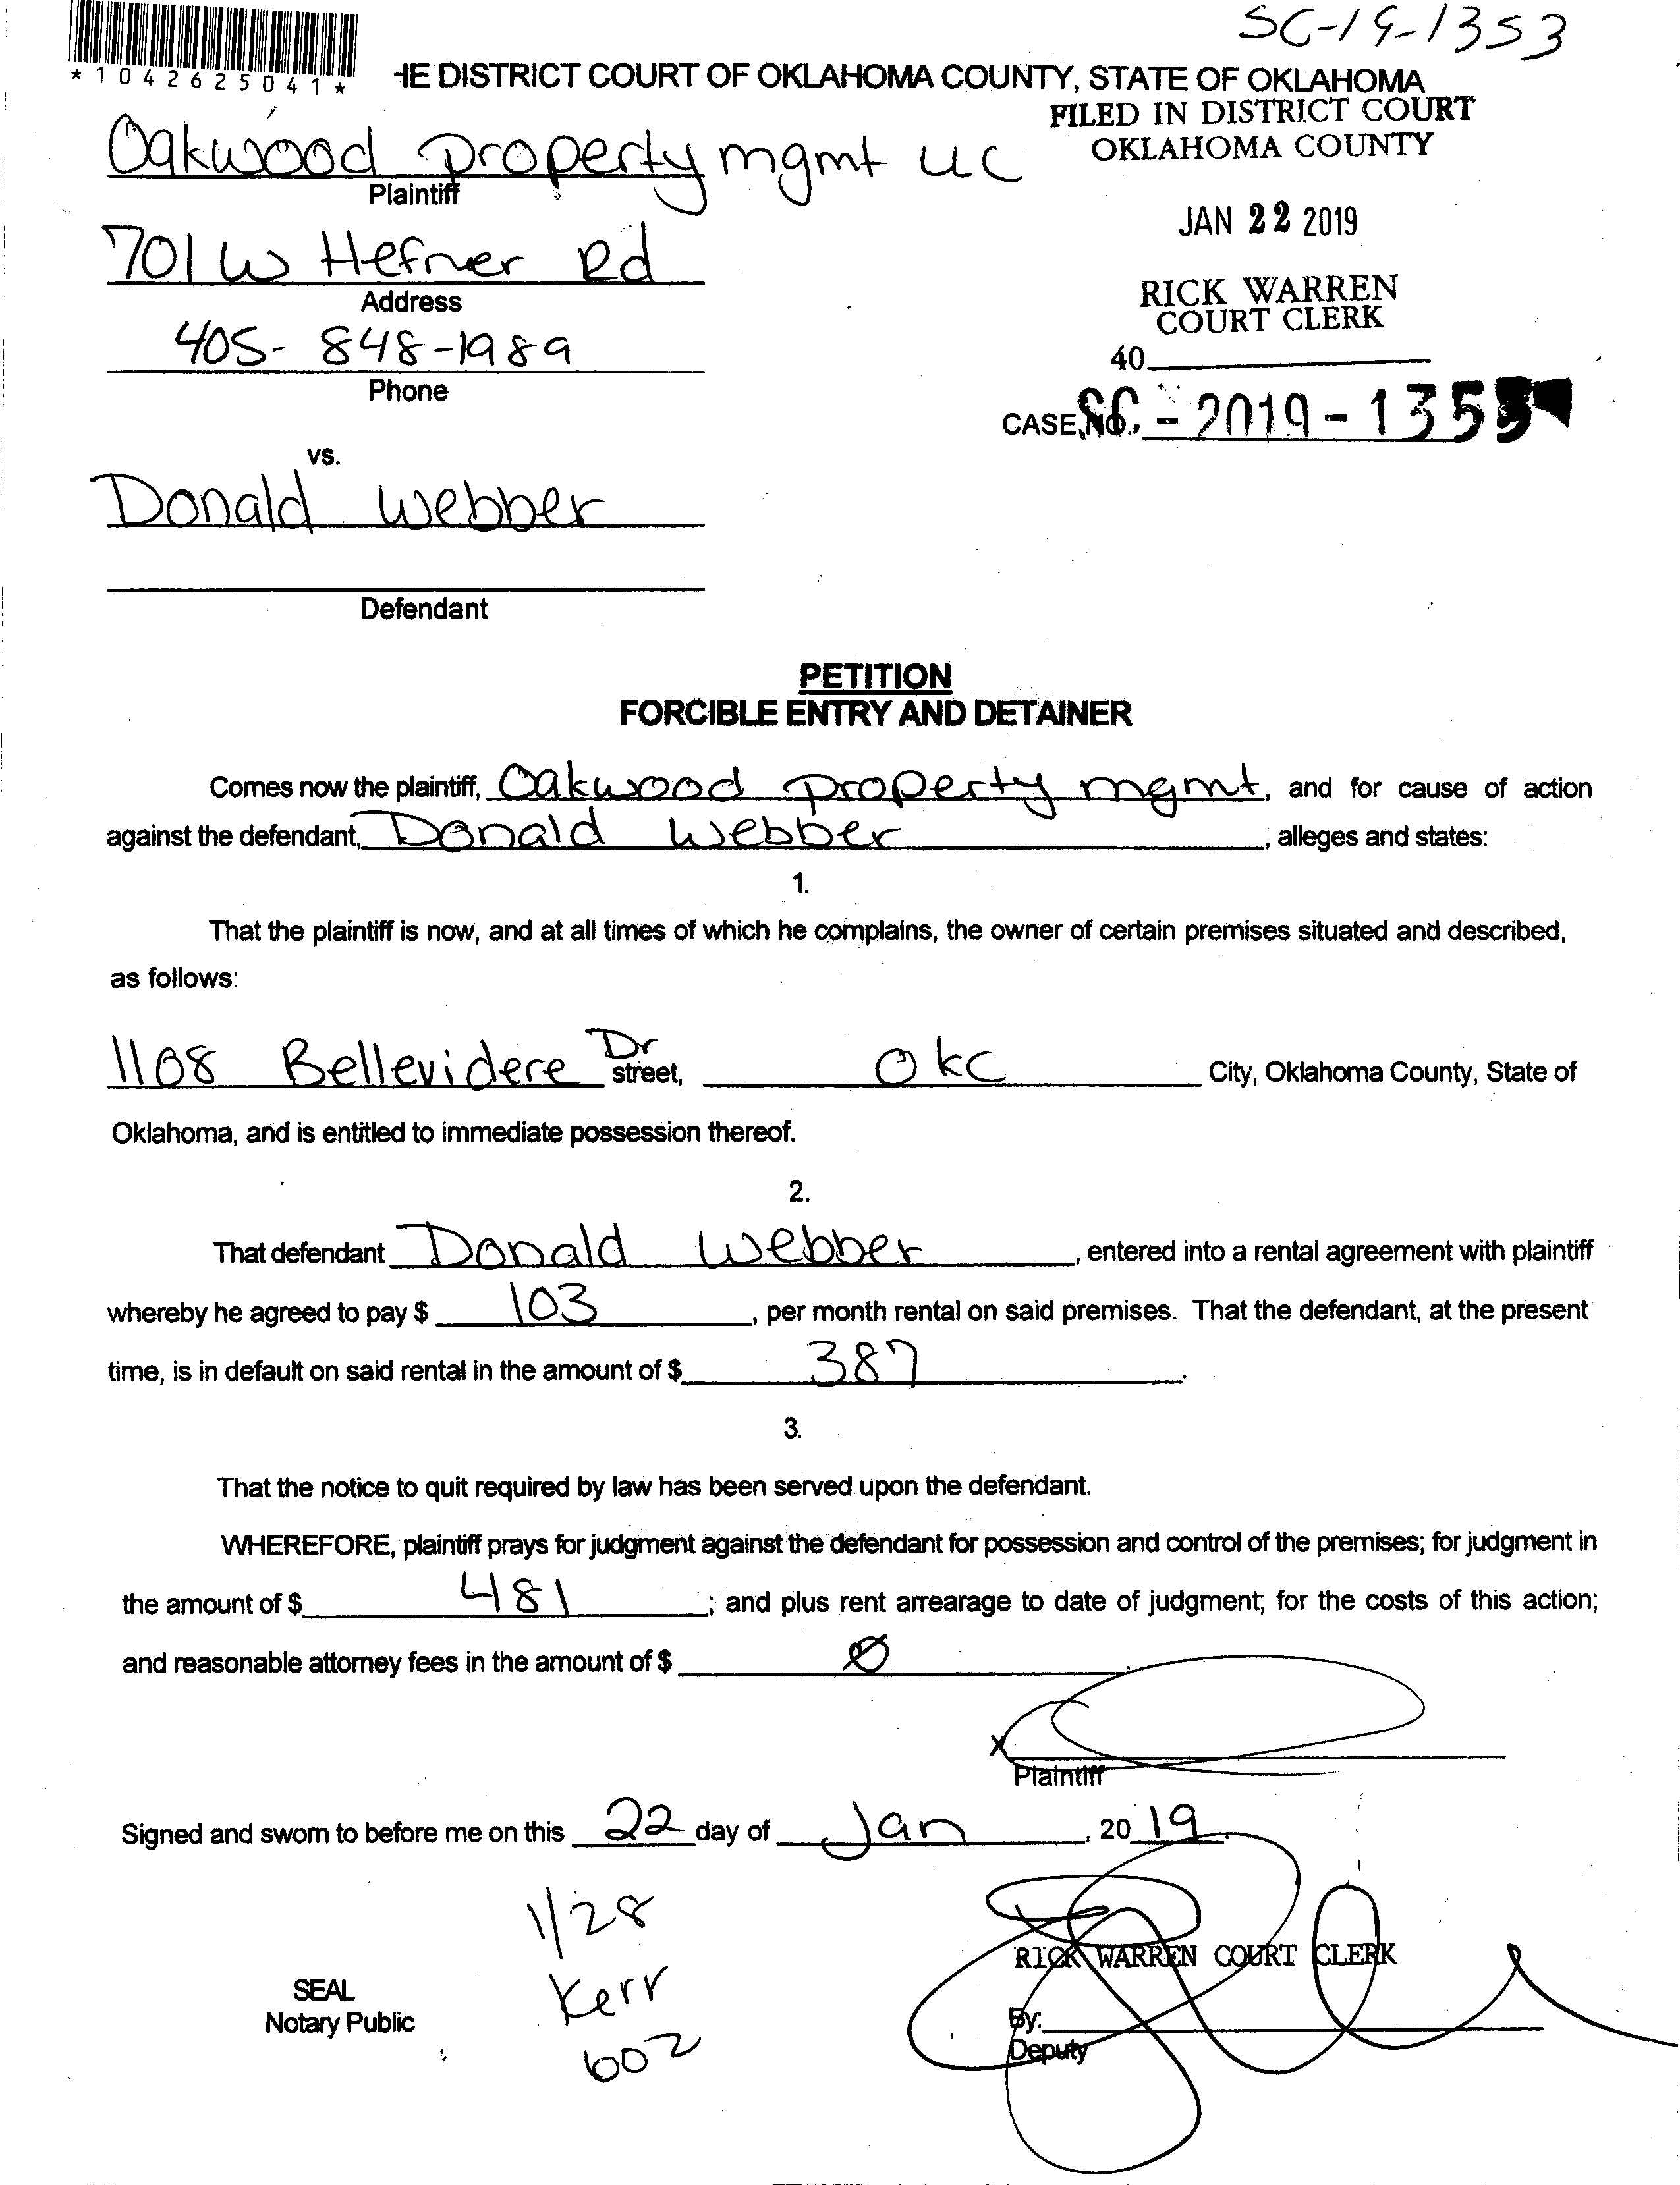 SC-19-1353
*1042625041*
HE DISTRICT COURT OF OKLAHOMA COUNTY, STATE OF OKLAHOMA
FILED IN DISTRICT COURT
OKLAHOMA COUNTY
Oakwood property mgmt LLC
Plaintiff
JAN 22 2019
701 W Hefner Rd
Address
RICK WARREN
COURT CLERK
405-848-1989
Phone
40
CASE NO. SC-2019-1353
vs.
Donald Webber
Defendant
PETITION
FORCIBLE ENTRY AND DETAINER
Comes now the plaintiff, Oakwood property mgmt, and for cause of action
against the defendant, Donald Webber, alleges and states:
1.
That the plaintiff is now, and at all times of which he complains, the owner of certain premises situated and described,
as follows:
1108 Bellevidere Dr street, OKC City, Oklahoma County, State of
Oklahoma, and is entitled to immediate possession thereof.
2.
That defendant Donald Webber, entered into a rental agreement with plaintiff
whereby he agreed to pay $ 103, per month rental on said premises. That the defendant, at the present
time, is in default on said rental in the amount of $ 387.
3.
That the notice to quit required by law has been served upon the defendant.
WHEREFORE, plaintiff prays for judgment against the defendant for possession and control of the premises; for judgment in
the amount of $ 481; and plus rent arrearage to date of judgment; for the costs of this action;
and reasonable attorney fees in the amount of $ Ø.
X
Plaintiff
Signed and sworn to before me on this 22 day of Jan, 2019.
1/28
RICK WARREN COURT CLERK
SEAL
Kerr
Notary Public
By:
602
Deputy